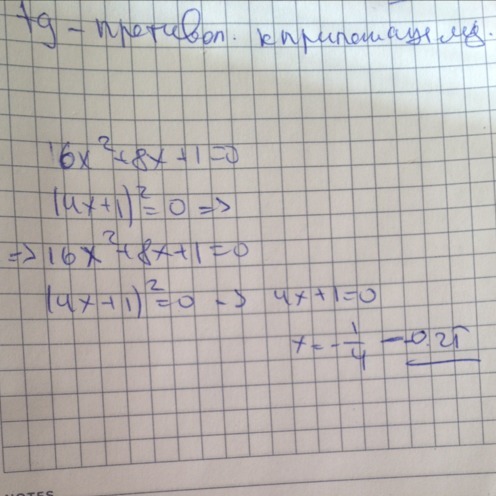 tg - противол. к прилежащему.
16x²+8x+1=0
(4x+1)²=0 =>
=> 16x²+8x+1=0
(4x+1)²=0 -> 4x+1=0
x=-1/4 -0.25
NOTES